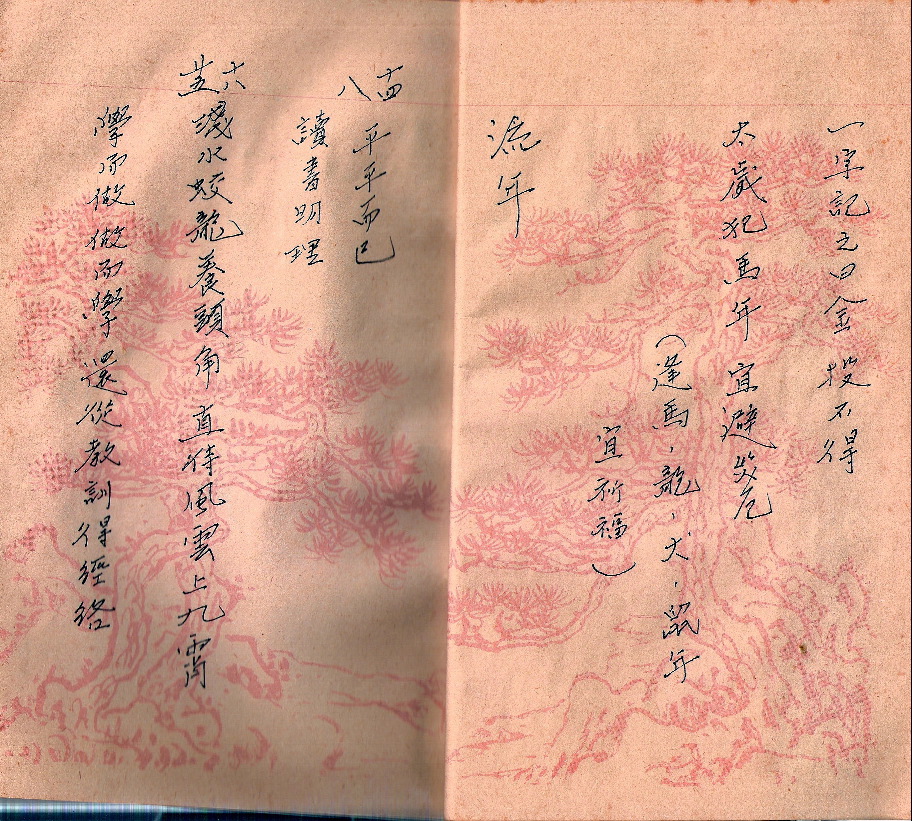 一字記之曰金 投不得
太歲犯馬年 宜避災厄
(逢馬,龍,犬,鼠年
宜祈福)
流年
八 平平而已
讀書明理
淺水蛟龍養頭角 直待風雲上九霄
學而做 做而學 還從教訓得經絡